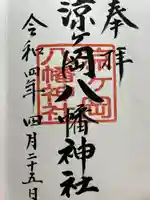 奉拝
涼ヶ岡八幡神社
令和四年 四月二十五日
涼ヶ岡
八幡神社